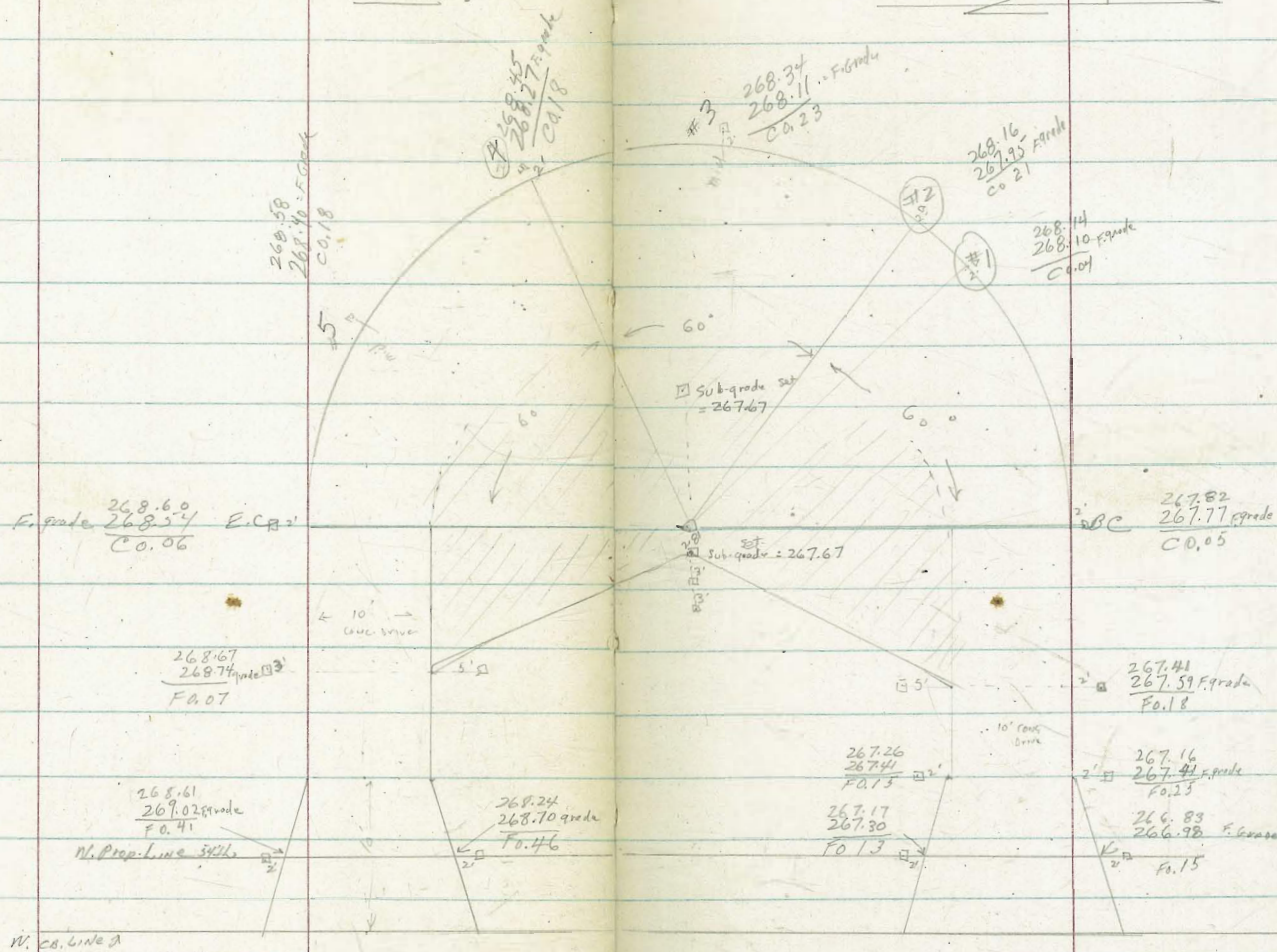 268.45
268.27 F.grade
C0.18
#4
2'
268.34
268.11 F.Grade
C0.23
#3
mid
2'
268.16
267.95 F.grade
C0 21
#2
268.14
268.10 F.grade
C0.04
#1
2'
268.58
268.40 = F.Grade
C0.18
5
60°
Sub-grade set
= 267.67
60
60
268.60
F. grade 268.54
C0.06
E.C 2'
Set
Sub-grade = 267.67
2' BC
267.82
267.77 F.grade
C0.05
10'
Conc. Drive
268.67
268.74 grade 3'
F0.07
5'
5'
2'
267.41
267.59 F.grade
F0.18
10' Conc
Drive
267.26
267.41
F0.15
2'
2'
267.16
267.41 F.grade
F0.25
268.61
269.02 F.grade
F0.41
W. Prop. Line
2'
268.24
268.70 grade
F0.46
2'
10'
267.17
267.30
F0 13
2'
266.83
266.98 F.Grade
F0.15
2'
W. CB. Line